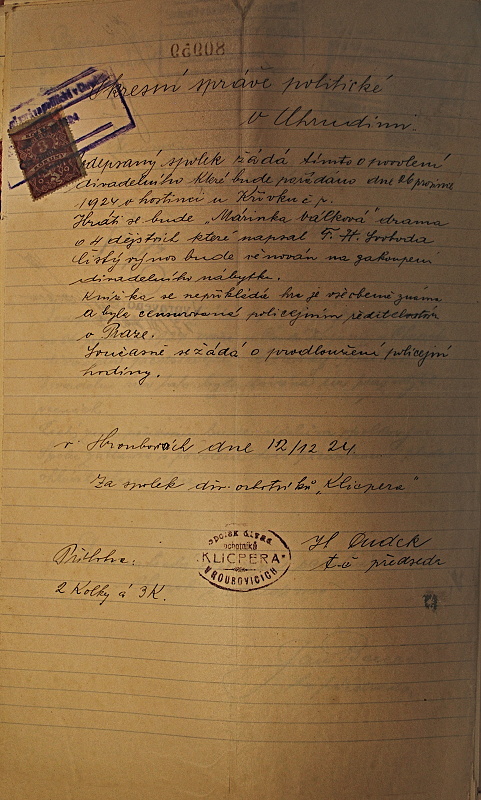 06908
Okresní správě politické
v Chrudimi.
depsaný spolek žádá tímto o povolení
divadelního které bude pořádáno dne 26 prosince
1924 v hostinci u Křivku č. p.
Hráti se bude "Marinka Válková" drama
o 4 dějstvích které napsal F. X. Svoboda
Čistý výnos bude věnován na zakoupení
divadelního nábytku.
Knížka se nepřikládá hra je všeobecně známa
a byla censurovaná policejním ředitelstvím
v Praze.
Současně se žádá o prodloužení policejní
hodiny.
v Hroubovicích dne 12/12 24
Za spolek div. ochotníků "Klicpera"
Příloha:
2 Kolky á 3K.
SPOLEK DIVAD.
ochotníků
"KLICPERA"
V HROUBOVICÍCH
Dudek
t. č. předseda